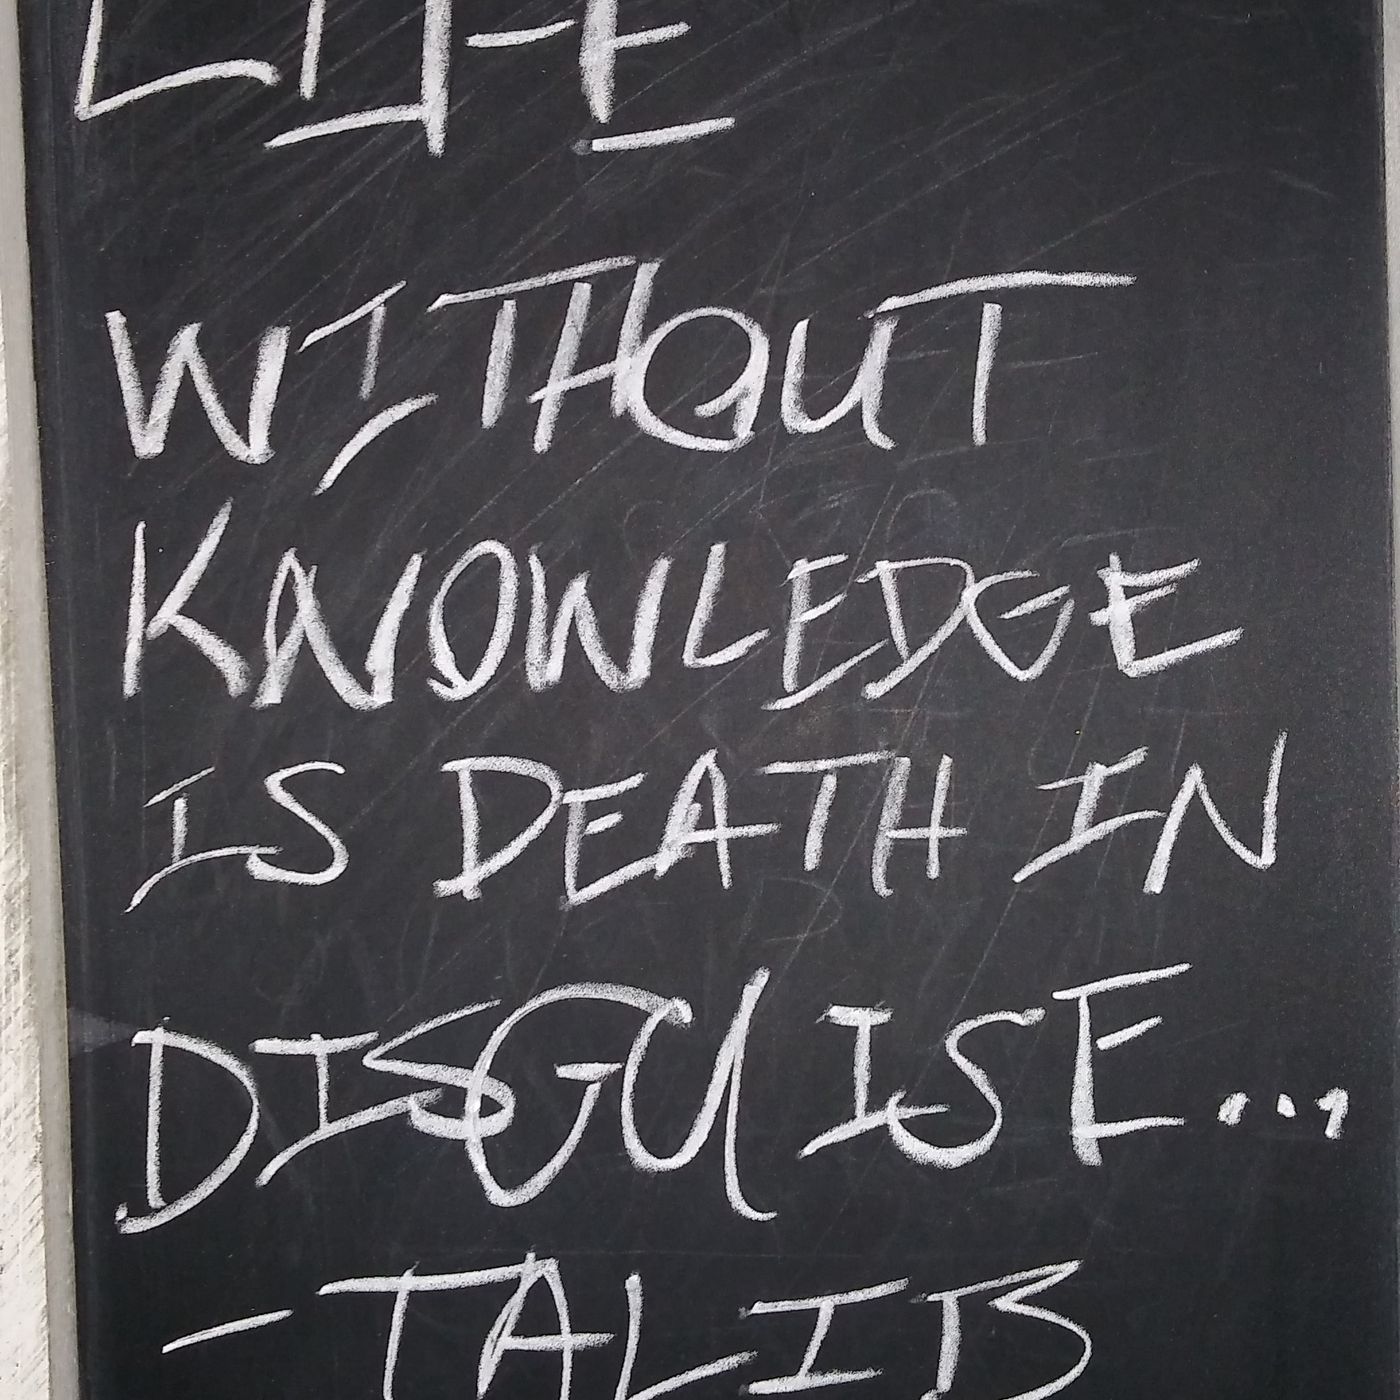 LIFE
WITHOUT
KNOWLEDGE
IS DEATH IN
DISGUISE...
- TALIB